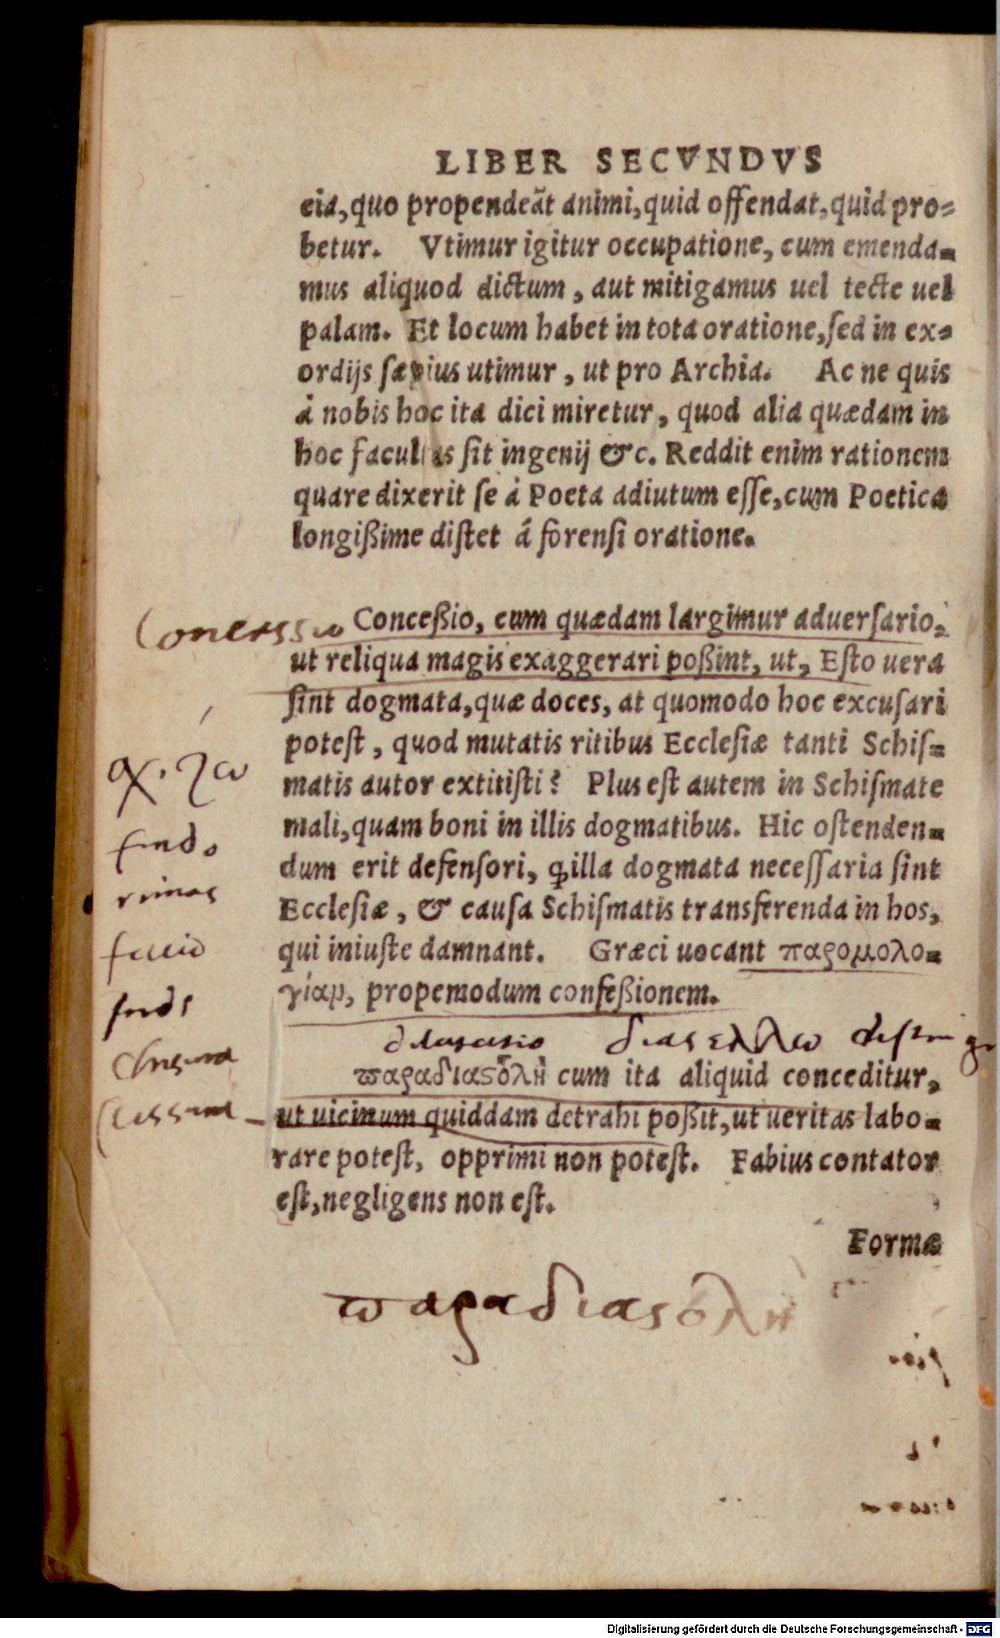 LIBER SECVNDVS
cia, quo propendeāt animi, quid offendat, quid pro-
betur. Vtimur igitur occupatione, cum emenda-
mus aliquod dictum, aut mitigamus uel tecte uel
palam. Et locum habet in tota oratione, sed in ex-
ordijs sæpius utimur, ut pro Archia. Ac ne quis
á nobis hoc ita dici miretur, quod alia quædam in
hoc facultas sit ingenij &c. Reddit enim rationem
quare dixerit se á Poeta adiutum esse, cum Poetica
longißime distet á forensi oratione.
Concessio
Conceßio, cum quædam largimur aduersario,
ut reliqua magis exaggerari poßint, ut, Esto uera
sint dogmata, quæ doces, at quomodo hoc excusari
potest, quod mutatis ritibus Ecclesiæ tanti Schis-
matis autor extitisti? Plus est autem in Schismate
mali, quam boni in illis dogmatibus. Hic ostenden-
dum erit defensori, ꝙ illa dogmata necessaria sint
Ecclesiæ, & causa Schismatis transferenda in hos,
qui iniuste damnant. Græci uocant παρομολο-
γίαμ, propemodum confeßionem.
findo
rimas
facio
διαστέλλω
παραδιαστολὴ cum ita aliquid conceditur,
ut uicinum quiddam detrahi poßit, ut ueritas labo-
rare potest, opprimi non potest. Fabius contator
est, negligens non est.
Formæ
παραδιαστολη
Digitalisierung gefördert durch die Deutsche Forschungsgemeinschaft - DFG